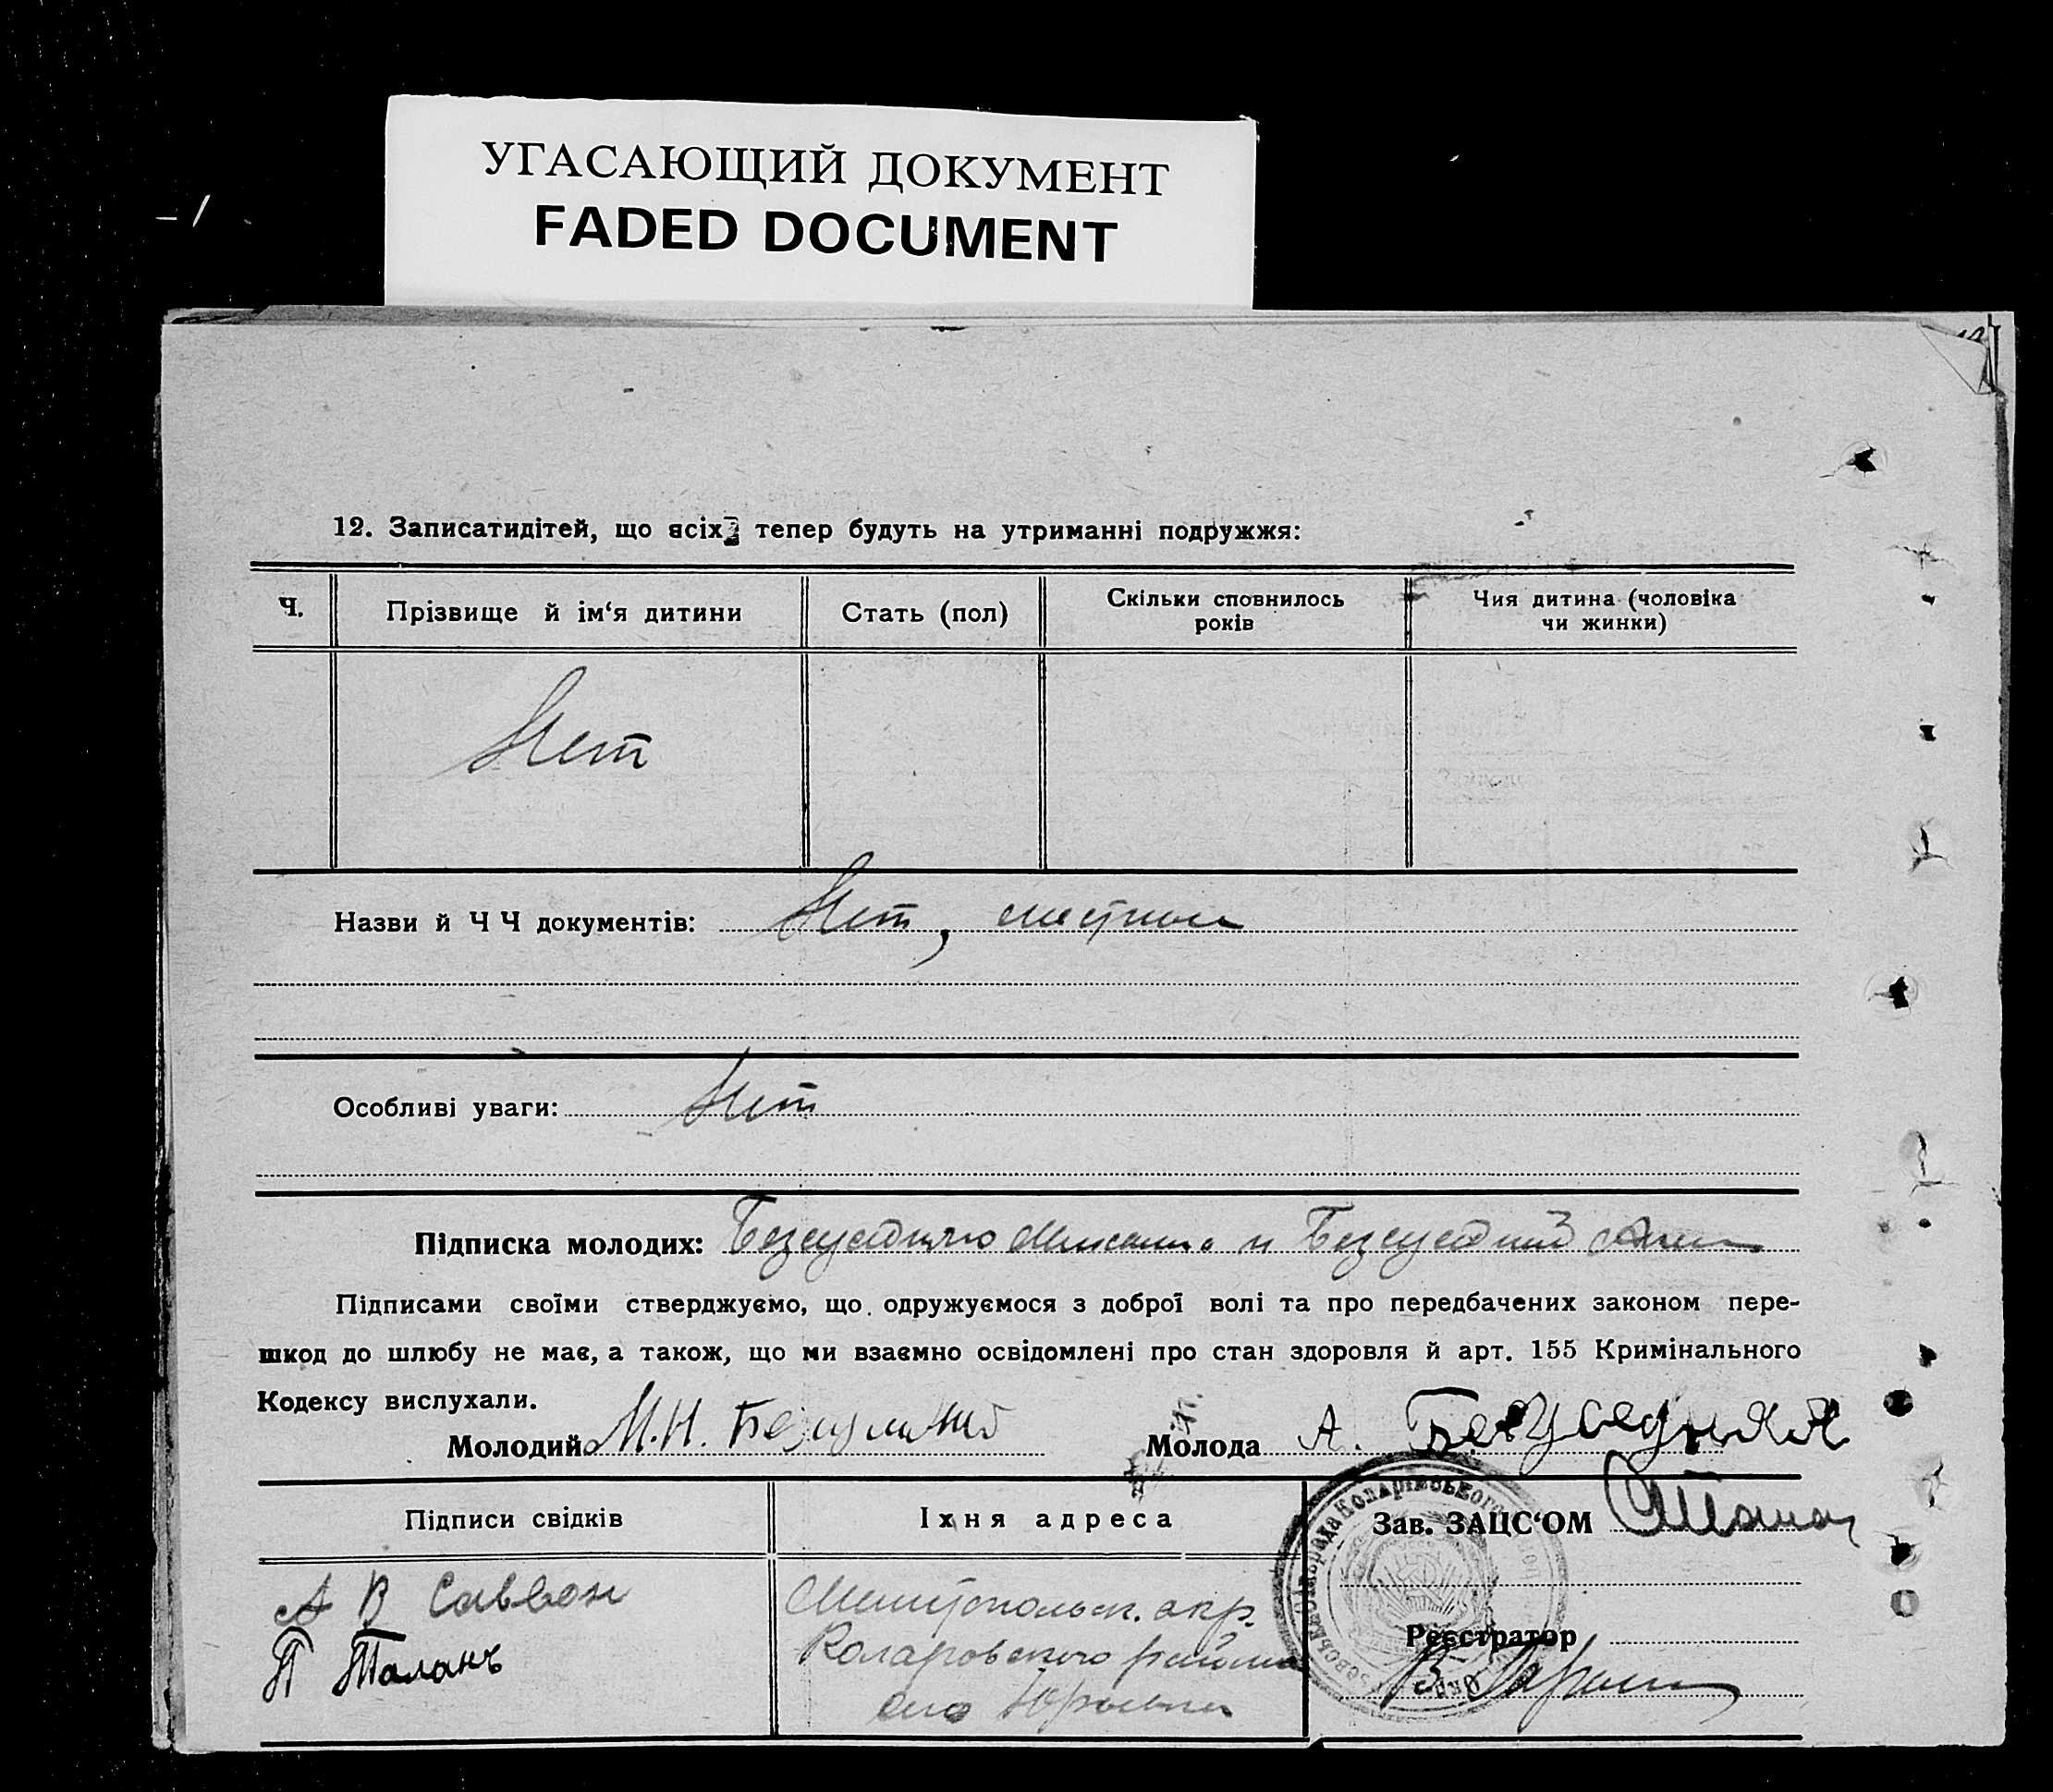 УГАСАЮЩИЙ ДОКУМЕНТ
FADED DOCUMENT
12. Записатидітей, що всіх тепер будуть на утриманні подружжя:
Ч.
Прізвище й ім‘я дитини
Стать (пол)
Скільки сповнилось
років
Чия дитина (чоловіка
чи жинки)
Нет
Назви й Ч Ч документів: Нет,
Особливі уваги: Нет
Підписка молодих: и
Підписами своїми стверджуємо, що одружуємося з доброї волі та про передбачених законом пере-
шкод до шлюбу не має, а також, що ми взаємно освідомлені про стан здоровля й арт. 155 Кримінального
Кодексу вислухали.
Молодий М.Н.
Молода А.
Підписи свідків
Іхня адреса
Зав. ЗАЦС‘ОМ
А В Саввон
П Таланъ
окр.
Коларовского района
село
Реєстратор